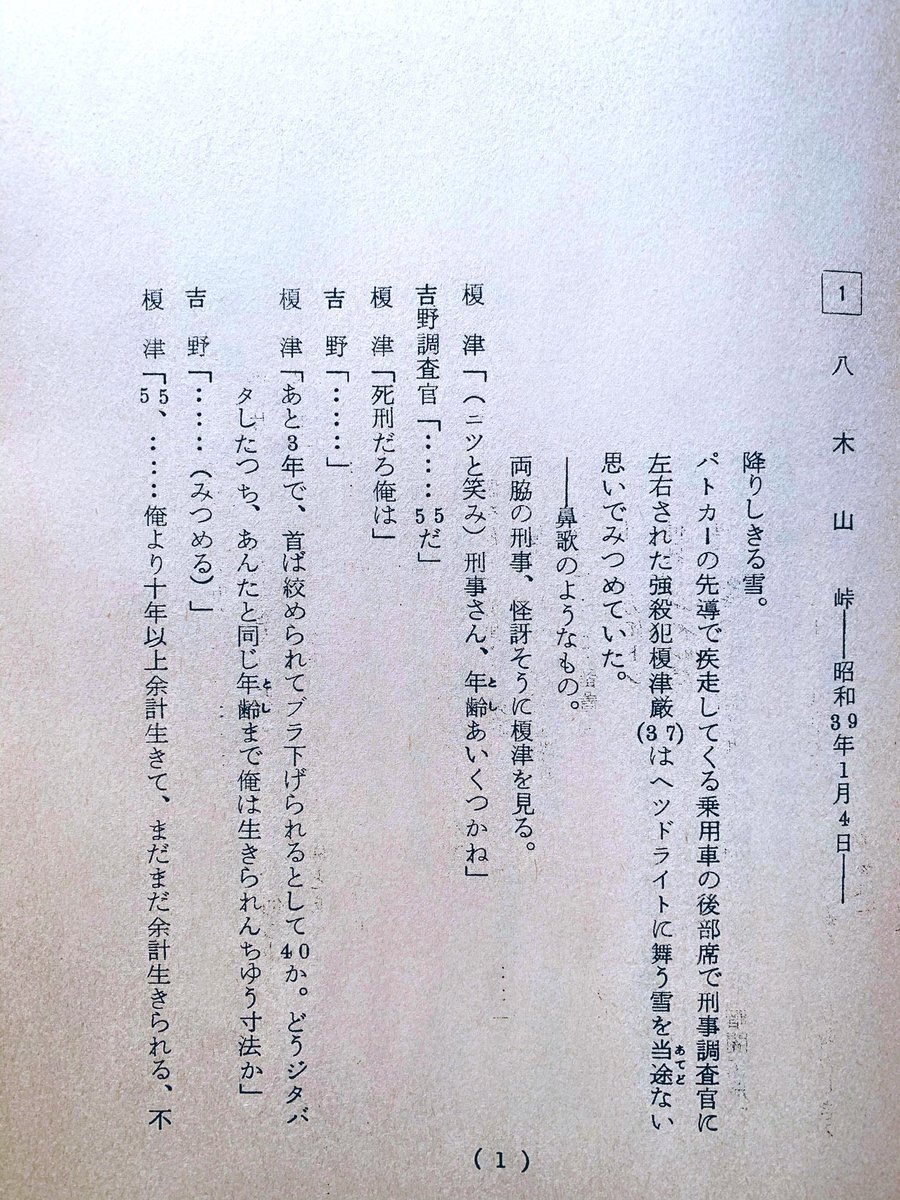 1 八木山峠――昭和39年1月4日――
降りしきる雪。
パトカーの先導で疾走してくる乗用車の後部席で刑事調査官に
左右された強殺犯榎津厳(37)はヘッドライトに舞う雪を当途ない
思いでみつめていた。
――鼻歌のようなもの。
両脇の刑事、怪訝そうに榎津を見る。
榎津「(ニツと笑み)刑事さん、年齢あいくつかね」
吉野調査官「‥‥‥55だ」
榎津「死刑だろ俺は」
吉野「‥‥‥」
榎津「あと3年で、首ば絞められてブラ下げられるとして40か。どうジタバ
タしたつち、あんたと同じ年齢まで俺は生きられんちゆう寸法か」
吉野「‥‥‥(みつめる)」
榎津「55、‥‥‥俺より十年以上余計生きて、まだまだ余計生きられる、不
(1)